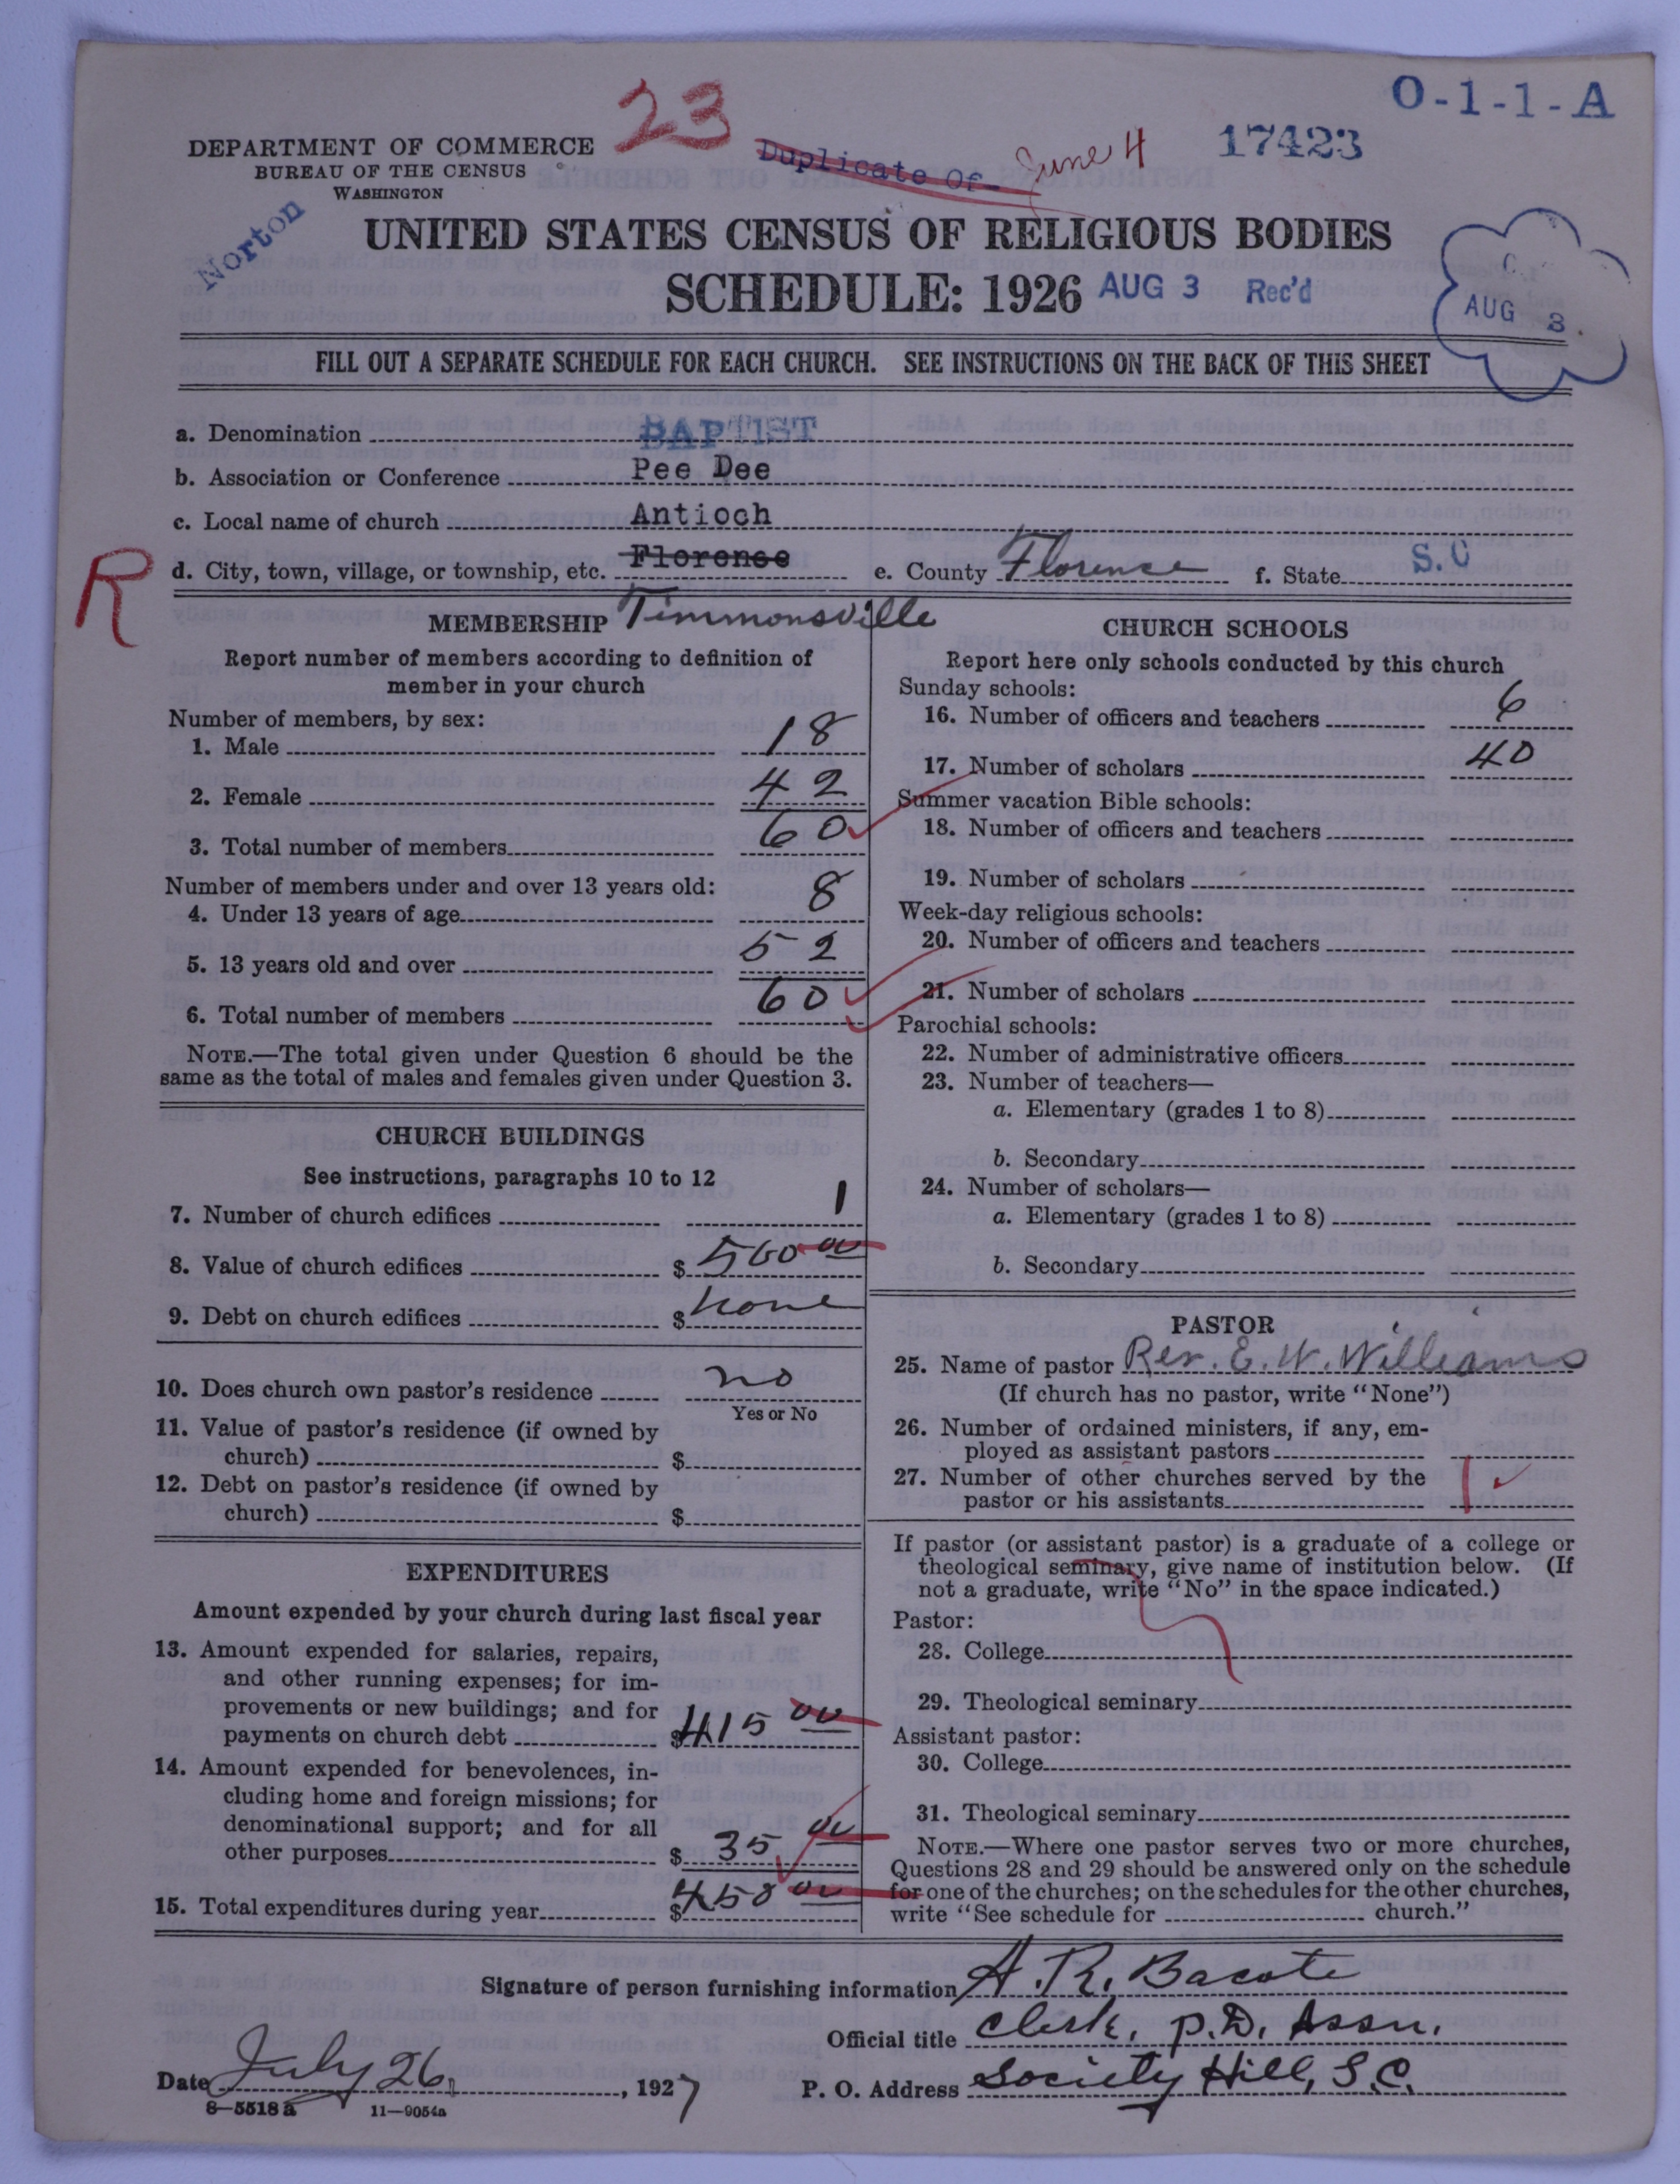 O-1-1-A
23
DEPARTMENT OF COMMERCE
BUREAU OF THE CENSUS
WASHINGTON
Duplicate Of June 4
17423
Norton
UNITED STATES CENSUS OF RELIGIOUS BODIES
SCHEDULE: 1926 AUG 3 Rec'd
C
AUG 3
FILL OUT A SEPARATE SCHEDULE FOR EACH CHURCH. SEE INSTRUCTIONS ON THE BACK OF THIS SHEET
a. Denomination BAPTIST
b. Association or Conference Pee Dee
c. Local name of church Antioch
R
d. City, town, village, or township, etc. Florence e. County Florence f. State S.C
Timmonsville
MEMBERSHIP
Report number of members according to definition of
member in your church
Number of members, by sex:
1. Male 18
2. Female 42
3. Total number of members 60
Number of members under and over 13 years old:
4. Under 13 years of age 8
5. 13 years old and over 52
6. Total number of members 60
NOTE.—The total given under Question 6 should be the
same as the total of males and females given under Question 3.
CHURCH BUILDINGS
See instructions, paragraphs 10 to 12
7. Number of church edifices 1
8. Value of church edifices $ 500 00
9. Debt on church edifices $ none
10. Does church own pastor's residence no
Yes or No
11. Value of pastor's residence (if owned by
church) $
12. Debt on pastor's residence (if owned by
church) $
EXPENDITURES
Amount expended by your church during last fiscal year
13. Amount expended for salaries, repairs,
and other running expenses; for im-
provements or new buildings; and for
payments on church debt $ 415 00
14. Amount expended for benevolences, in-
cluding home and foreign missions; for
denominational support; and for all
other purposes $ 35 00
15. Total expenditures during year $ 450 00
CHURCH SCHOOLS
Report here only schools conducted by this church
Sunday schools:
16. Number of officers and teachers 6
17. Number of scholars 40
Summer vacation Bible schools:
18. Number of officers and teachers
19. Number of scholars
Week-day religious schools:
20. Number of officers and teachers
21. Number of scholars
Parochial schools:
22. Number of administrative officers
23. Number of teachers—
a. Elementary (grades 1 to 8)
b. Secondary
24. Number of scholars—
a. Elementary (grades 1 to 8)
b. Secondary
PASTOR
25. Name of pastor Rev. E. W. Williams
(If church has no pastor, write "None")
26. Number of ordained ministers, if any, em-
ployed as assistant pastors
27. Number of other churches served by the
pastor or his assistants 1
If pastor (or assistant pastor) is a graduate of a college or
theological seminary, give name of institution below. (If
not a graduate, write "No" in the space indicated.)
Pastor:
28. College
29. Theological seminary
Assistant pastor:
30. College
31. Theological seminary
NOTE.—Where one pastor serves two or more churches,
Questions 28 and 29 should be answered only on the schedule
for one of the churches; on the schedules for the other churches,
write "See schedule for church."
Signature of person furnishing information A. R. Bacote
Official title Clerk. P.D. Assn.
Date July 26, 1927 P. O. Address Society Hill, S.C.
8—5518 a 11—9054a